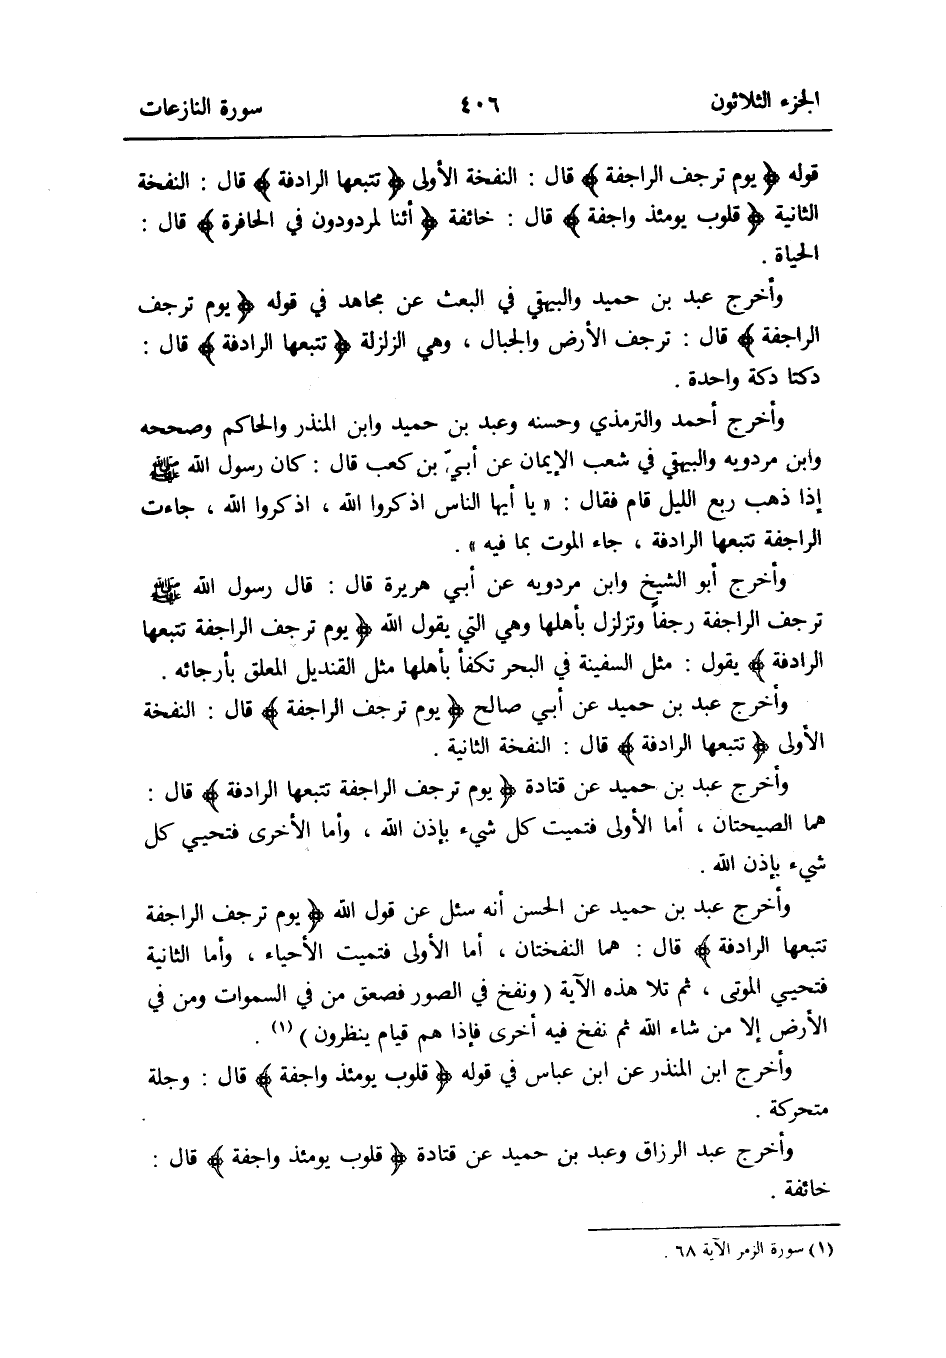 الجزء الثلاثون ٤٠٦ سورة النازعات
قوله ﴿ يوم ترجف الراجفة ﴾ قال : النفخة الأولى ﴿ تتبعها الرادفة ﴾ قال : النفخة
الثانية ﴿ قلوب يومئذ واجفة ﴾ قال : خائفة ﴿ أئنا لمردودون في الحافرة ﴾ قال :
الحياة .
وأخرج عبد بن حميد والبيهقي في البعث عن مجاهد في قوله ﴿ يوم ترجف
الراجفة ﴾ قال : ترجف الأرض والجبال ، وهي الزلزلة ﴿ تتبعها الرادفة ﴾ قال :
دكتا دكة واحدة .
وأخرج أحمد والترمذي وحسنه وعبد بن حميد وابن المنذر والحاكم وصححه
وابن مردويه والبيهقي في شعب الإيمان عن أبيّ بن كعب قال : كان رسول الله ﷺ
إذا ذهب ربع الليل قام فقال : « يا أيها الناس اذكروا الله ، اذكروا الله ، جاءت
الراجفة تتبعها الرادفة ، جاء الموت بما فيه » .
وأخرج أبو الشيخ وابن مردويه عن أبي هريرة قال : قال رسول الله ﷺ
ترجف الراجفة رجفاً وتزلزل بأهلها وهي التي يقول الله ﴿ يوم ترجف الراجفة تتبعها
الرادفة ﴾ يقول : مثل السفينة في البحر تكفأ بأهلها مثل القنديل المعلق بأرجائه .
وأخرج عبد بن حميد عن أبي صالح ﴿ يوم ترجف الراجفة ﴾ قال : النفخة
الأولى ﴿ تتبعها الرادفة ﴾ قال : النفخة الثانية .
وأخرج عبد بن حميد عن قتادة ﴿ يوم ترجف الراجفة تتبعها الرادفة ﴾ قال :
هما الصيحتان ، أما الأولى فتميت كل شيء بإذن الله ، وأما الأخرى فتحيي كل
شيء بإذن الله .
وأخرج عبد بن حميد عن الحسن أنه سئل عن قول الله ﴿ يوم ترجف الراجفة
تتبعها الرادفة ﴾ قال : هما النفختان ، أما الأولى فتميت الأحياء ، وأما الثانية
فتحيي الموتى ، ثم تلا هذه الآية ( ونفخ في الصور فصعق من في السموات ومن في
الأرض إلا من شاء الله ثم نفخ فيه أخرى فإذا هم قيام ينظرون ) (١) .
وأخرج ابن المنذر عن ابن عباس في قوله ﴿ قلوب يومئذ واجفة ﴾ قال : وجلة
متحركة .
وأخرج عبد الرزاق وعبد بن حميد عن قتادة ﴿ قلوب يومئذ واجفة ﴾ قال :
خائفة .
(١) سورة الزمر الآية ٦٨ .